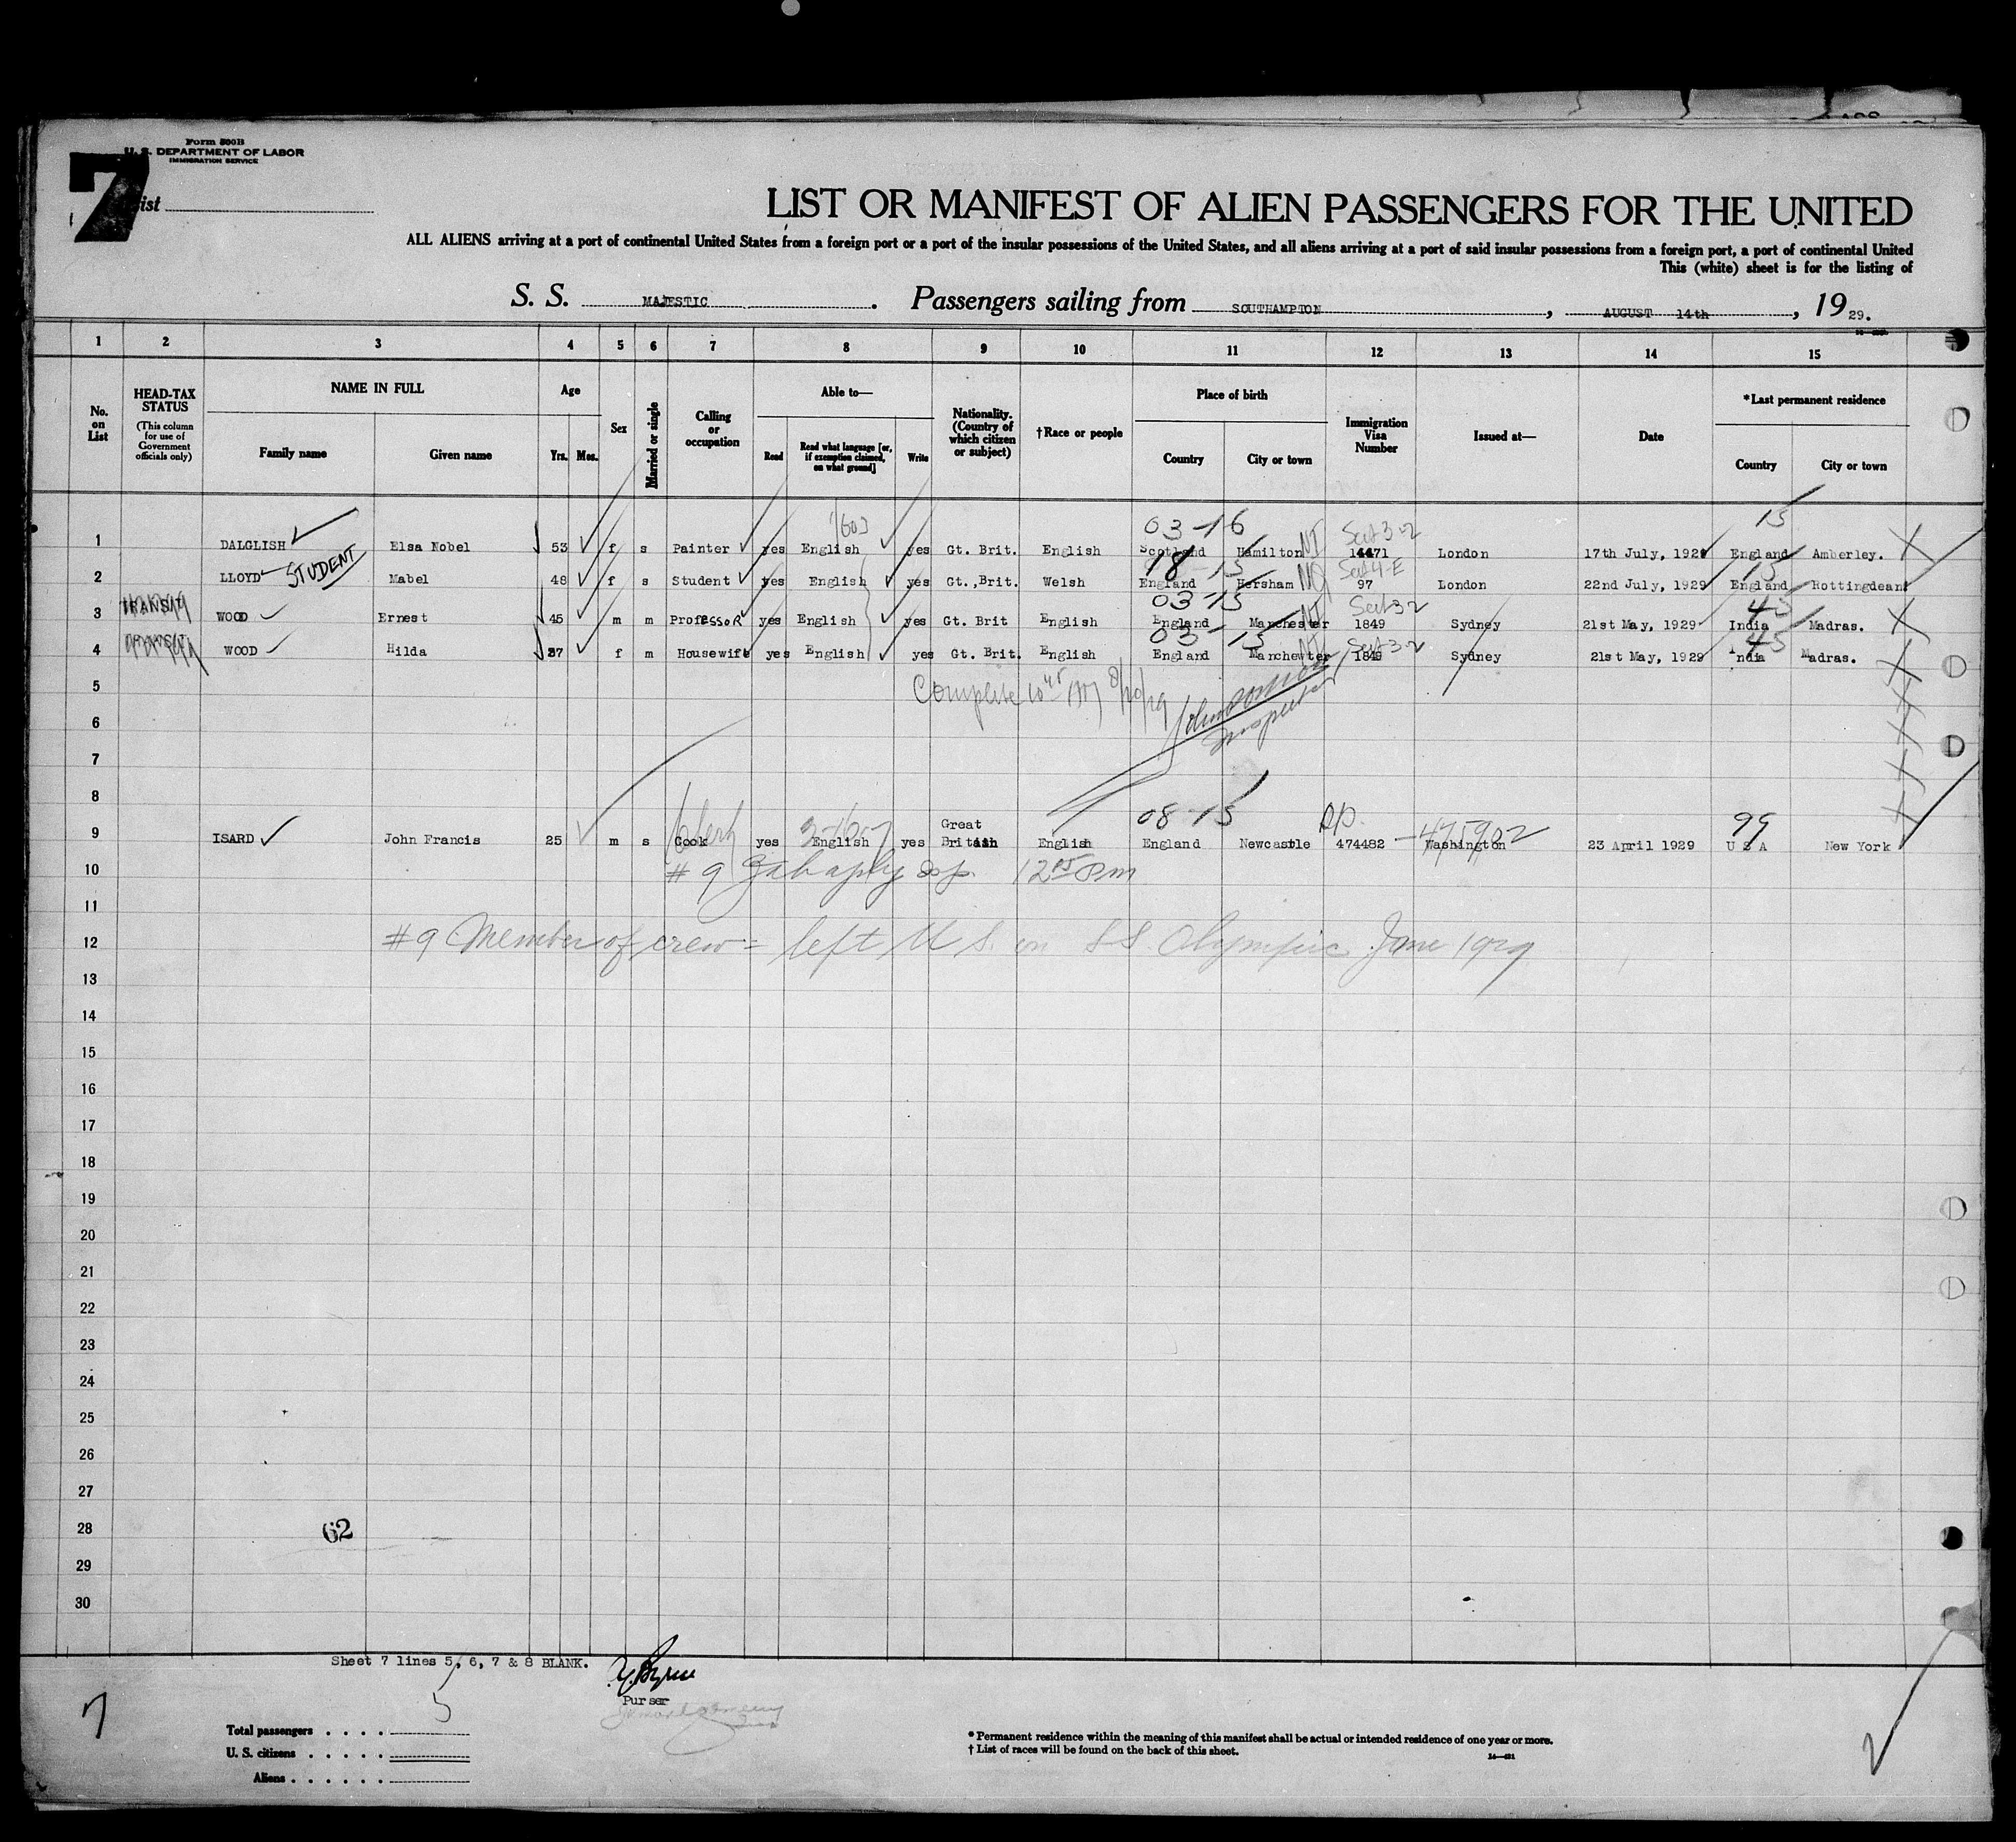 Form 500B
U. S. DEPARTMENT OF LABOR
IMMIGRATION SERVICE
7
List
LIST OR MANIFEST OF ALIEN PASSENGERS FOR THE UNITED
ALL ALIENS arriving at a port of continental United States from a foreign port or a port of the insular possessions of the United States, and all aliens arriving at a port of said insular possessions from a foreign port, a port of continental United
This (white) sheet is for the listing of
S. S. MAJESTIC. Passengers sailing from SOUTHAMPTON, AUGUST 14th, 19 29.
1 2 3 4 5 6 7 8 9 10 11 12 13 14 15
No. on List
HEAD-TAX STATUS (This column for use of Government officials only)
NAME IN FULL
Family name Given name
Age
Yrs. Mos.
Sex
Married or single
Calling or occupation
Able to—
Read Read what language [or, if exemption claimed, on what ground] Write
Nationality. (Country of which citizen or subject)
†Race or people
Place of birth
Country City or town
Immigration Visa Number
Issued at—
Date
*Last permanent residence
Country City or town
03-16 Sect 3-2 15
1 DALGLISH Elsa Nobel 53 f s Painter yes English yes Gt. Brit. English Scotland Hamilton NI 14471 London 17th July, 1929 England Amberley.
STUDENT 18-15 Sect 4-E 15
2 LLOYD Mabel 48 f s Student yes English yes Gt.,Brit. Welsh England Hersham NQ 97 London 22nd July, 1929 England Rottingdean
TRANSIT 03-15 Sect 3-2 45
3 WOOD Ernest 45 m m ProfessoR yes English yes Gt. Brit English England Manchester NI 1849 Sydney 21st May, 1929 India Madras.
03-15 Sect 3-2 45
4 WOOD Hilda 37 f m Housewife yes English yes Gt. Brit. English England Manchewter NI 1848 Sydney 21st May, 1929 India Madras.
5 Complete 10 45 AM 8/20/29
Inspector
6
7
8
08-15 R/P. 99
9 ISARD John Francis 25 m s Cook yes English yes Great British English England Newcastle 474482 -475902 Washington 23 April 1929 U S A New York
10 #9 12 15 Pm
11
12 #9 Member of crew = left U S. on SS. Olympic June 1929
13
14
15
16
17
18
19
20
21
22
23
24
25
26
27
28 62
29
30
Sheet 7 lines 5, 6, 7 & 8 BLANK.
Purser
7
5
Total passengers . . . .
U. S. citizens . . . . .
Aliens . . . . . .
* Permanent residence within the meaning of this manifest shall be actual or intended residence of one year or more.
† List of races will be found on the back of this sheet.